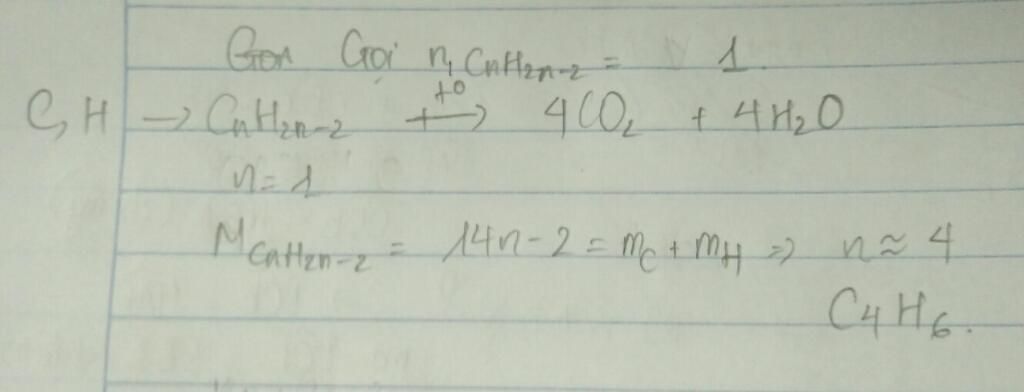 Gọi n CnH2n-2 = 1.
C, H → CnH2n-2 +O → 4CO2 + 4H2O
n = 1
M CnH2n-2 = 14n - 2 = mC + mH => n ≈ 4
C4H6.